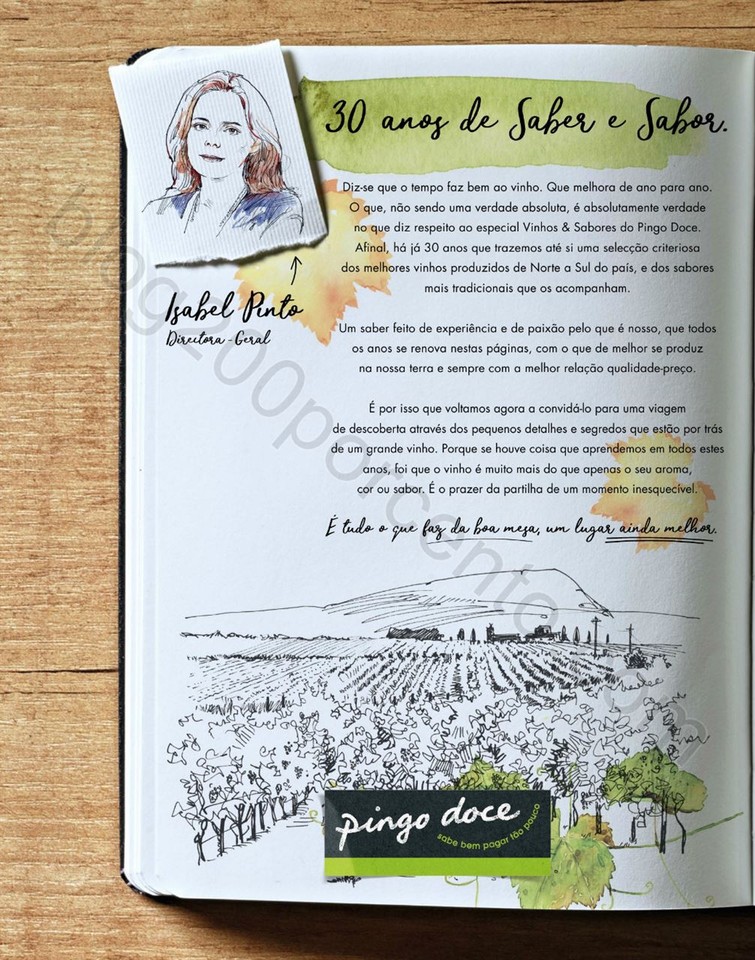 30 anos de Saber e Sabor.
Diz-se que o tempo faz bem ao vinho. Que melhora de ano para ano.
O que, não sendo uma verdade absoluta, é absolutamente verdade
no que diz respeito ao especial Vinhos & Sabores do Pingo Doce.
Afinal, há já 30 anos que trazemos até si uma selecção criteriosa
dos melhores vinhos produzidos de Norte a Sul do país, e dos sabores
mais tradicionais que os acompanham.
Isabel Pinto
Directora-Geral
Um saber feito de experiência e de paixão pelo que é nosso, que todos
os anos se renova nestas páginas, com o que de melhor se produz
na nossa terra e sempre com a melhor relação qualidade-preço.
É por isso que voltamos agora a convidá-lo para uma viagem
de descoberta através dos pequenos detalhes e segredos que estão por trás
de um grande vinho. Porque se houve coisa que aprendemos em todos estes
anos, foi que o vinho é muito mais do que apenas o seu aroma,
cor ou sabor. É o prazer da partilha de um momento inesquecível.
É tudo o que faz da boa mesa, um lugar ainda melhor.
pingo doce
sabe bem pagar tão pouco
blog200porcento.com